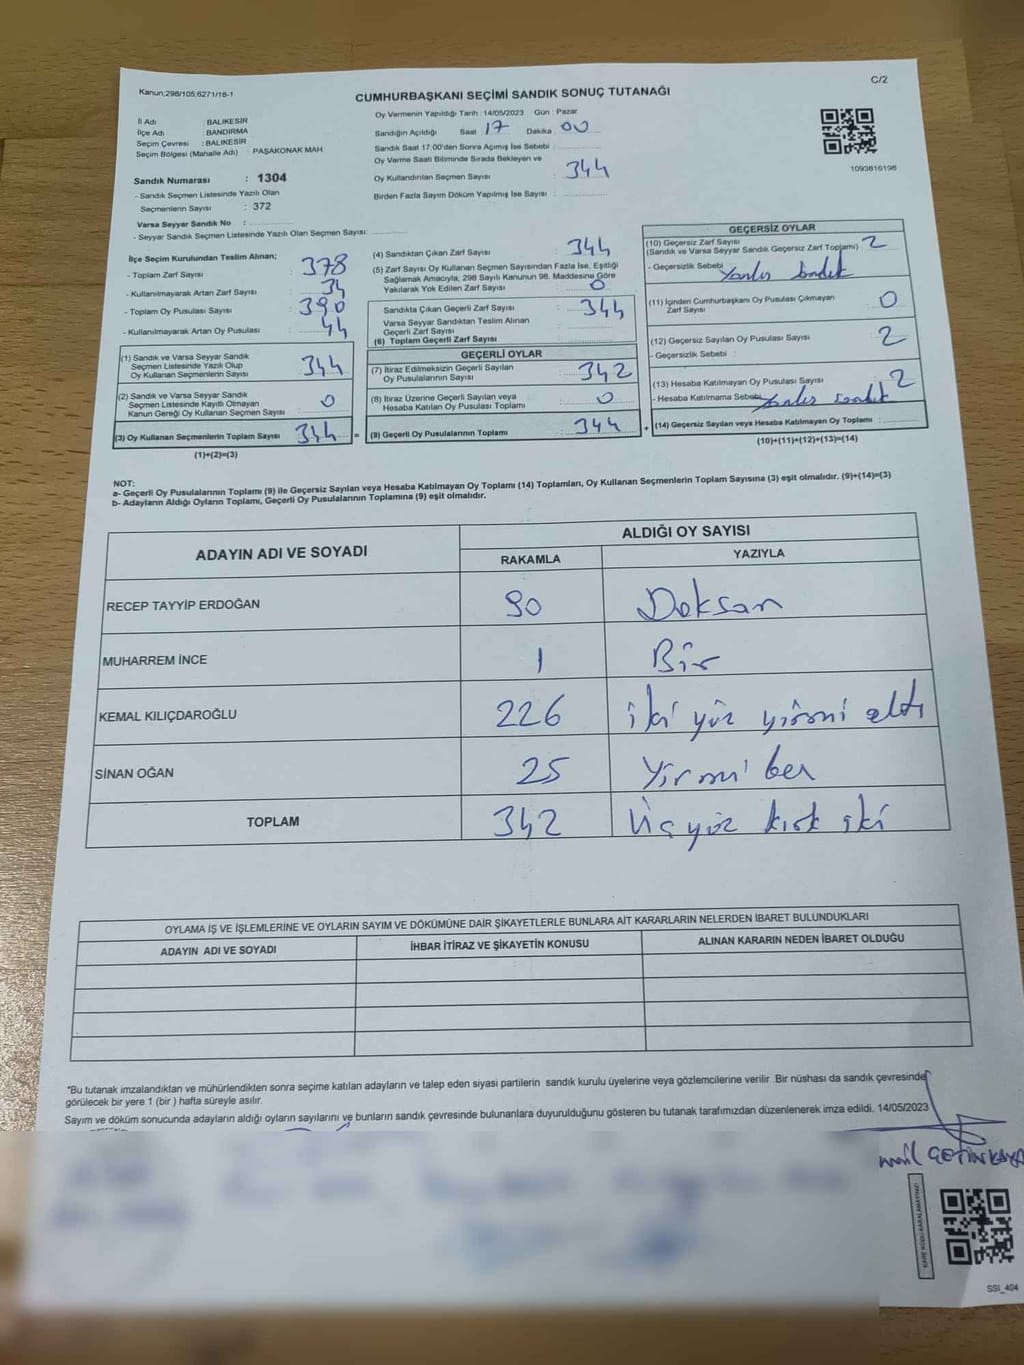 Kanun:298/105;6271/18-1
C/2
CUMHURBAŞKANI SEÇİMİ SANDIK SONUÇ TUTANAĞI
İl Adı : BALIKESİR
İlçe Adı : BANDIRMA
Seçim Çevresi : BALIKESİR
Seçim Bölgesi (Mahalle Adı) : PAŞAKONAK MAH.
Sandık Numarası : 1304
- Sandık Seçmen Listesinde Yazılı Olan
Seçmenlerin Sayısı : 372
Varsa Seyyar Sandık No :
- Seyyar Sandık Seçmen Listesinde Yazılı Olan Seçmen Sayısı:
Oy Vermenin Yapıldığı Tarih : 14/05/2023 Gün : Pazar
Sandığın Açıldığı Saat 17 Dakika 00
Sandık Saat 17.00'den Sonra Açılmış İse Sebebi :
Oy Verme Saati Bitiminde Sırada Bekleyen ve
Oy Kullandırılan Seçmen Sayısı : 344
Birden Fazla Sayım Döküm Yapılmış İse Sayısı :
1093816196
İlçe Seçim Kurulundan Teslim Alınan;
- Toplam Zarf Sayısı : 378
- Kullanılmayarak Artan Zarf Sayısı : 34
- Toplam Oy Pusulası Sayısı : 390
- Kullanılmayarak Artan Oy Pusulası : 44
(1) Sandık ve Varsa Seyyar Sandık
Seçmen Listesinde Yazılı Olup
Oy Kullanan Seçmenlerin Sayısı : 344
(2) Sandık ve Varsa Seyyar Sandık
Seçmen Listesinde Kayıtlı Olmayan
Kanun Gereği Oy Kullanan Seçmen Sayısı : 0
(3) Oy Kullanan Seçmenlerin Toplam Sayısı 344 =
(1)+(2)=(3)
(4) Sandıktan Çıkan Zarf Sayısı : 344
(5) Zarf Sayısı Oy Kullanan Seçmen Sayısından Fazla İse, Eşitliği
Sağlamak Amacıyla, 298 Sayılı Kanunun 98. Maddesine Göre
Yakılarak Yok Edilen Zarf Sayısı : 0
Sandıkta Çıkan Geçerli Zarf Sayısı : 344
Varsa Seyyar Sandıktan Teslim Alınan
Geçerli Zarf Sayısı :
(6) Toplam Geçerli Zarf Sayısı :
GEÇERLİ OYLAR
(7) İtiraz Edilmeksizin Geçerli Sayılan
Oy Pusulalarının Sayısı : 342
(8) İtiraz Üzerine Geçerli Sayılan veya
Hesaba Katılan Oy Pusulası Toplamı : 0
(9) Geçerli Oy Pusulalarının Toplamı : 344 +
GEÇERSİZ OYLAR
(10) Geçersiz Zarf Sayısı : 2
(Sandık ve Varsa Seyyar Sandık Geçersiz Zarf Toplamı)
- Geçersizlik Sebebi : Yanlış sandık
(11) İçinden Cumhurbaşkanı Oy Pusulası Çıkmayan
Zarf Sayısı : 0
(12) Geçersiz Sayılan Oy Pusulası Sayısı : 2
- Geçersizlik Sebebi :
(13) Hesaba Katılmayan Oy Pusulası Sayısı : 2
- Hesaba Katılmama Sebebi : Yanlış sandık
(14) Geçersiz Sayılan veya Hesaba Katılmayan Oy Toplamı :
(10)+(11)+(12)+(13)=(14)
NOT:
a- Geçerli Oy Pusulalarının Toplamı (9) ile Geçersiz Sayılan veya Hesaba Katılmayan Oy Toplamı (14) Toplamları, Oy Kullanan Seçmenlerin Toplam Sayısına (3) eşit olmalıdır. (9)+(14)=(3)
b- Adayların Aldığı Oyların Toplamı, Geçerli Oy Pusulalarının Toplamına (9) eşit olmalıdır.
ADAYIN ADI VE SOYADI
ALDIĞI OY SAYISI
RAKAMLA YAZIYLA
RECEP TAYYİP ERDOĞAN 90 Doksan
MUHARREM İNCE 1 Bir
KEMAL KILIÇDAROĞLU 226 iki yüz yirmi altı
SİNAN OĞAN 25 Yirmi beş
TOPLAM 342 Üç yüz kırk iki
OYLAMA İŞ VE İŞLEMLERİNE VE OYLARIN SAYIM VE DÖKÜMÜNE DAİR ŞİKAYETLERLE BUNLARA AİT KARARLARIN NELERDEN İBARET BULUNDUKLARI
ADAYIN ADI VE SOYADI İHBAR İTİRAZ VE ŞİKAYETİN KONUSU ALINAN KARARIN NEDEN İBARET OLDUĞU
"Bu tutanak imzalandıktan ve mühürlendikten sonra seçime katılan adayların ve talep eden siyasi partilerin sandık kurulu üyelerine veya gözlemcilerine verilir .Bir nüshası da sandık çevresinde
görülecek bir yere 1 (bir ) hafta süreyle asılır.
Sayım ve döküm sonucunda adayların aldığı oyların sayılarını ve bunların sandık çevresinde bulunanlara duyurulduğunu gösteren bu tutanak tarafımızdan düzenlenerek imza edildi. 14/05/2023
ÇETİNKAYA
KARE KODU KARALAMAYINIZ!
SSI_404